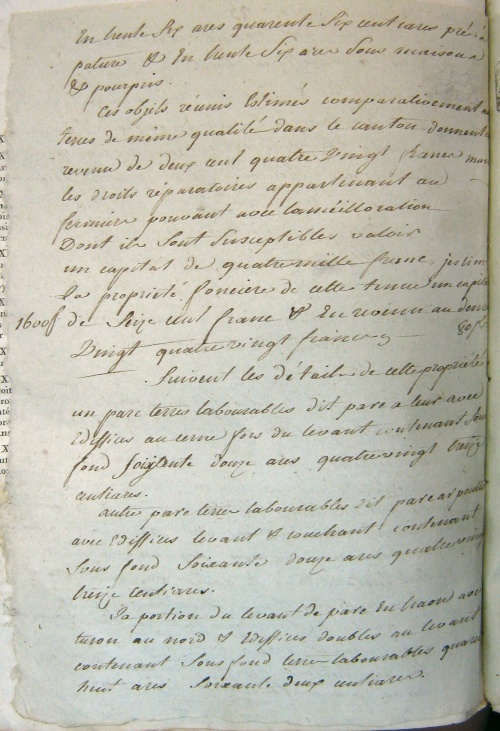 En trente Six ares quarente Six centiares pré à
pature & En trente Six ares Sous maison a
& pourpris.
Ces objets réunis Estimés comparativement a
terres de même qualité dans le canton donnent
revenu de deux cent quatre Vingt francs mais
les droits réparatoires appartenant au
fermier pouvant avec lamélloration
Dont ils Sont Susceptibles valoir
un capital de quatre mille franc, jestim
la propriété foncière de cette tenue un capital
1600f de Seize cent franc & En revenu au denier
Vingt quatre vingt francs 80f
Suivent les détails de cette propriété
un parc terres labourables dit parc a leur avec
Ediffices au cerne fors du levant contenant Sous
fond Soixente douze ares quatre vingt treize
centiares.
autre parc terre labourables dit parc ar
avec Ediffices levant & couchant contenant
Sous fond Soixante douze ares quatre vingt
treize Centiares.
la portion du levant de parc En
au nord & Ediffices doubles au levant
contenant Sous fond terre labourables quarente
huit ares Soixante deux centiares.